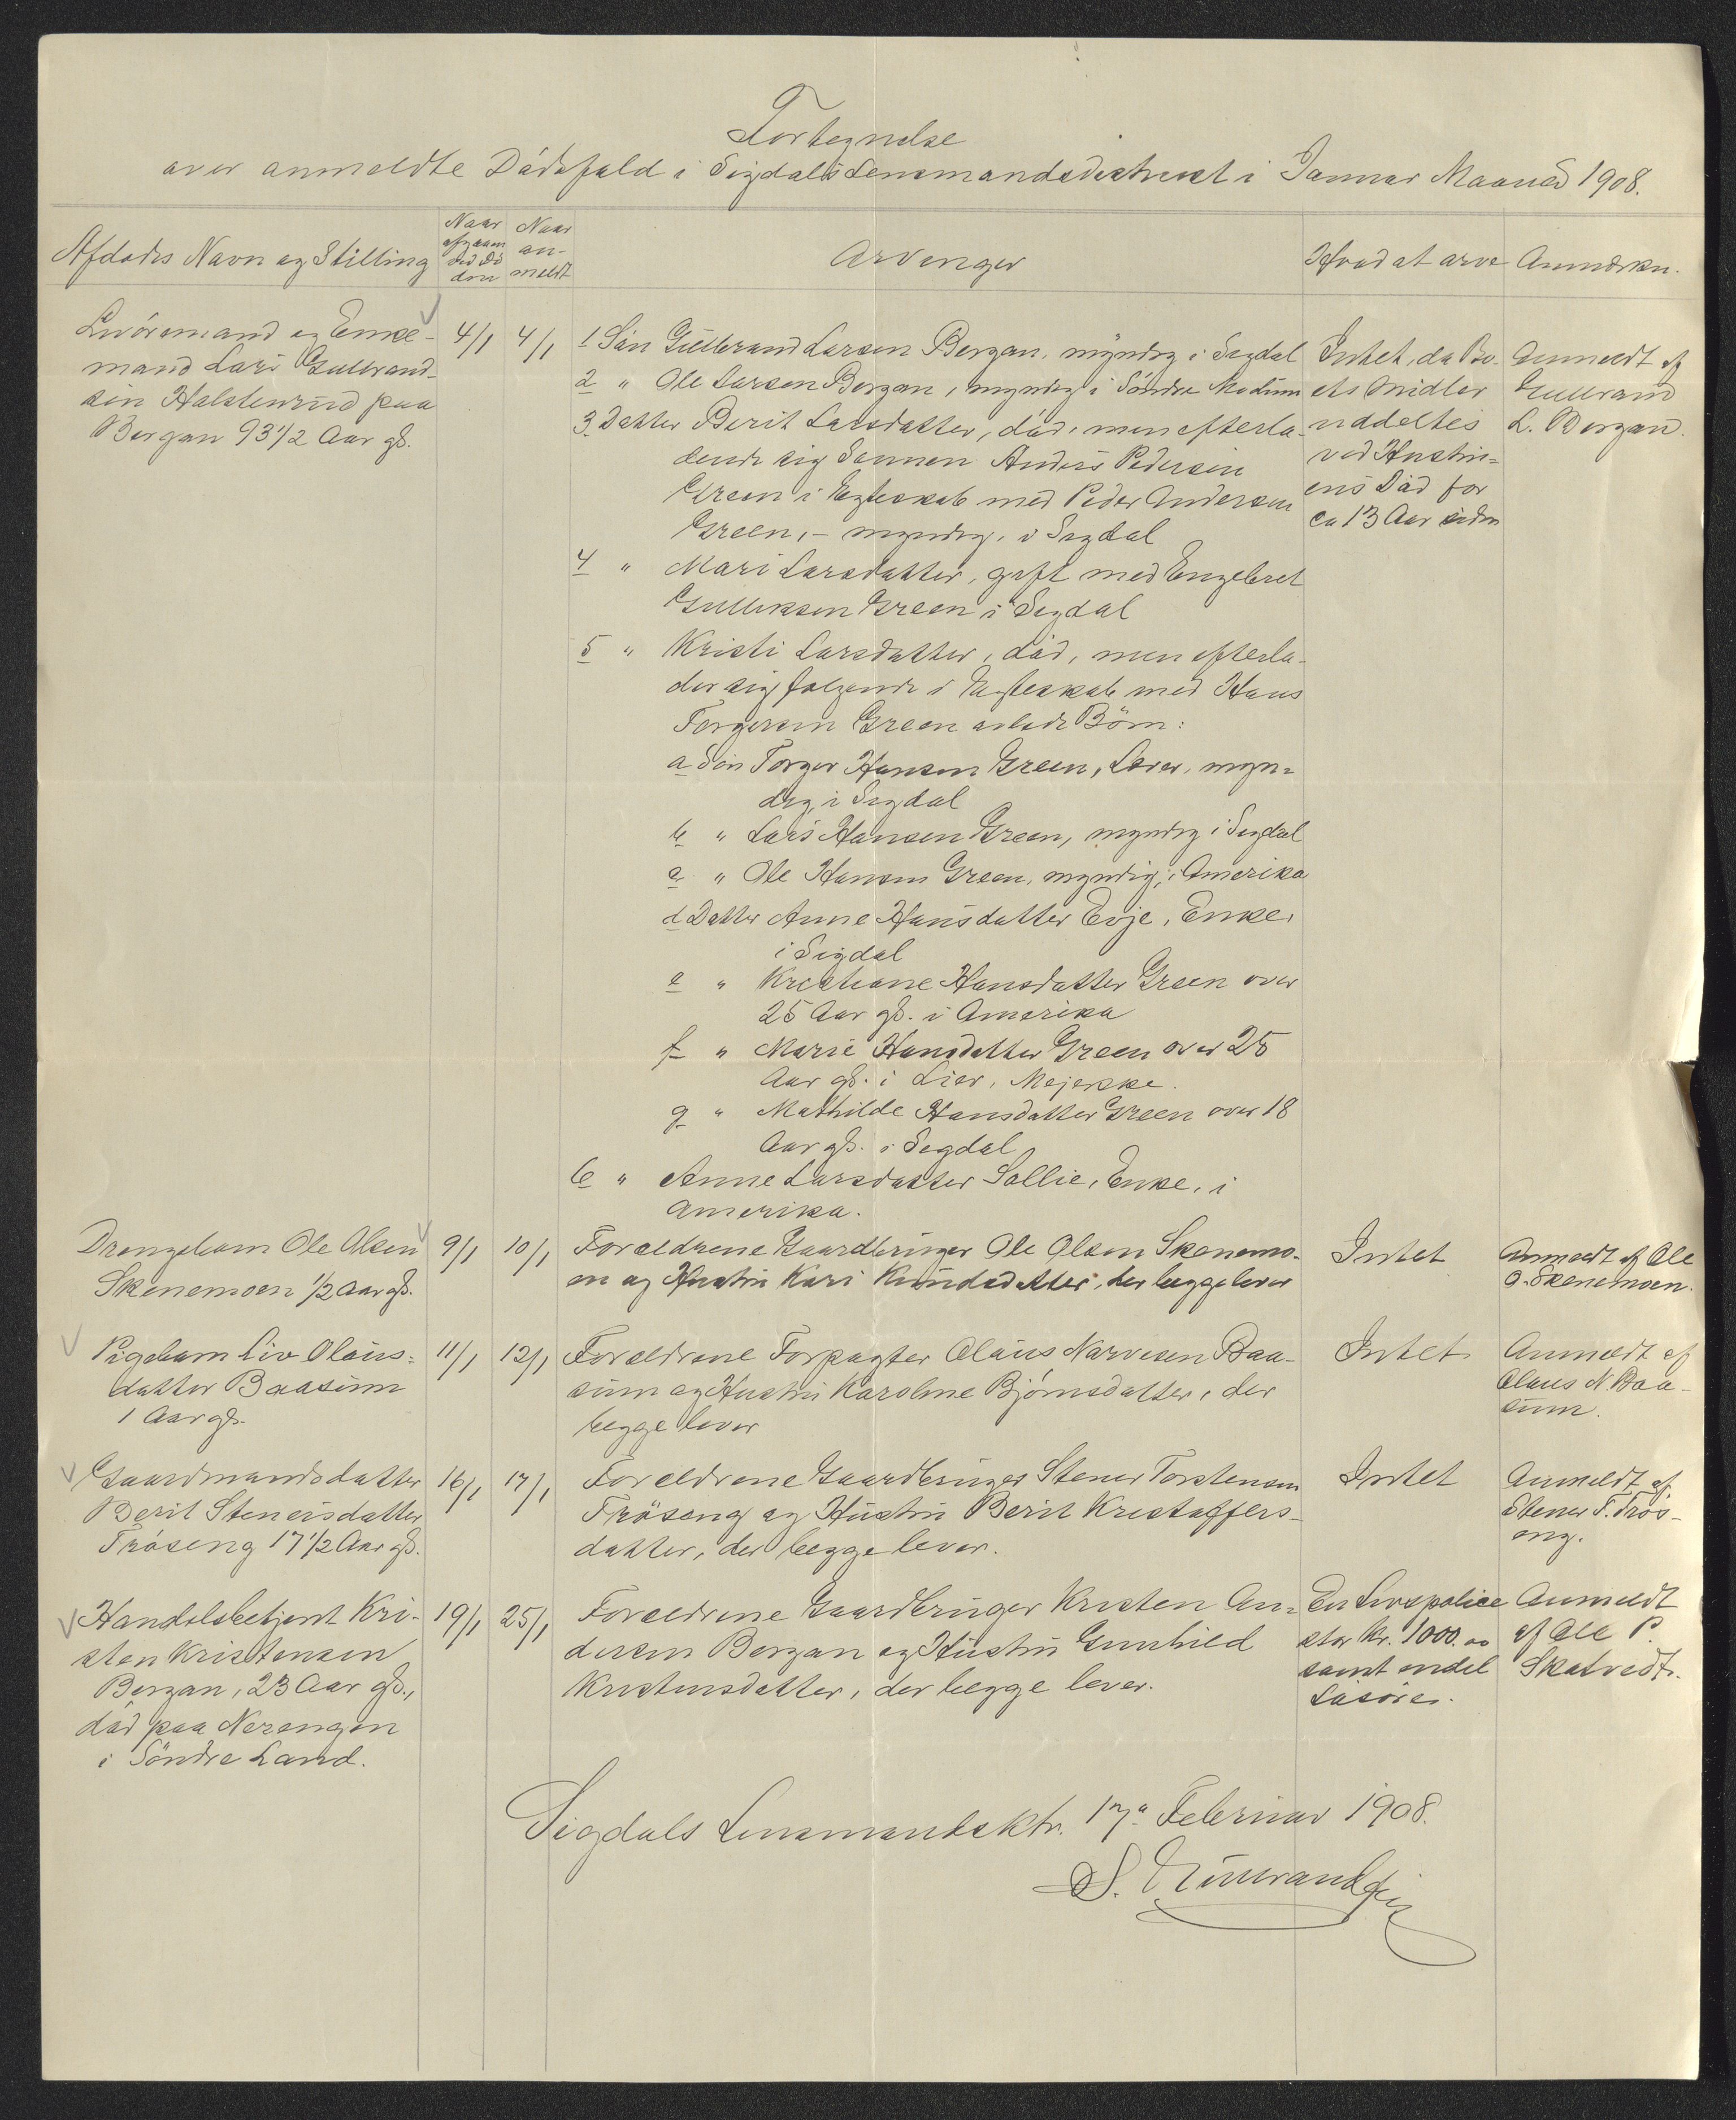 Fortegnelse
over anmeldte Dødsfald i Sigdals Lensmandsdistrikt i Januar Maaned 1908.
Afdødes Navn og Stilling
Naar
afgaaet
ved Dø
den
Naar
an-
meldt
Arvinger
Hvad at arve
Anmærkn.
mand og Enke-
mand Lars Gulbrand-
sen Halstenrud paa
Bergan 93 1/2 Aar gl.
4/1
4/1
1 Søn Gulbrand Larsen Bergan, myndig i Sigdal
2 " Ole Larsen Bergan, myndig i Søndre Modum
3 Datter Berit Larsdatter, død, men efterla-
dende sig Sønnen Anders Pedersen
Green i Egteskab med Peder Andersen
Green, - myndig, i Sigdal
4 " Mari Larsdatter, gift med Engebret
Gulliksen Green i Sigdal
5 " Kristi Larsdatter, død, men efterla-
der sig følgende i Egteskab med Hans
Torgersen Green avlede Børn:
a Søn Torger Hansen Green, Lærer, myn-
dig, i Sigdal
b " Lars Hansen Green, myndig i Sigdal
c " Ole Hansen Green, myndig, i Amerika
d Datter Anne Hansdatter Evje, Enke,
i Sigdal
e " Kristiane Hansdatter Green over
25 Aar gl. i Amerika
f " Marie Hansdatter Green over 25
Aar gl. i Lier, Mejerske.
g " Mathilde Hansdatter Green over 18
Aar gl. i Sigdal
6 " Anne Larsdatter Sollie, Enke, i
Amerika.
Intet, da Bo-
ets Midler
uddeltes
ved Hustru-
ens Død for
ca 13 Aar siden
Anmeldt af
Gulbrand
L. Bergan.
Drengebarn Ole Olsen
Skenemoen 1/2 Aar gl.
9/1
10/1
Forældrene Gaardbruger Ole Olsen Skenemo-
en og Hustru Kari Knudsdatter, der begge lever
Intet
Anmeldt af Ole
O. Skenemoen.
Pigebarn Liv Olaus-
datter Baasum
1 Aar gl.
11/1
12/1
Forældrene Forpagter Olaus Narvesen Baa-
sum og Hustru Karoline Bjørnsdatter, der
begge lever
Intet
Anmeldt af
Olaus N. Baa-
sum.
Gaardmandsdatter
Berit Stenersdatter
Frøseng 17 1/2 Aar gl.
16/1
17/1
Forældrene Gaardbruger Stener Torstensen
Frøseng og Hustru Berit Kristoffers-
datter, der begge lever.
Intet
Anmeldt af
Stener T. Frøs-
eng.
Handelsbetjent Kri-
sten Kristensen
Bergan, 23 Aar gl.,
død paa Nerengen
i Søndre Land.
19/1
25/1
Forældrene Gaardbruger Kristen An-
dersen Bergan og Hustru Gunhild
Kristensdatter, der begge lever.
En Livspolice
stor Kr. 1000.00
samt endel
Løsøre.
Anmeldt
af Ole P.
Skatvedt.
Sigdals Lensmandsktr. 17de Februar 1908.